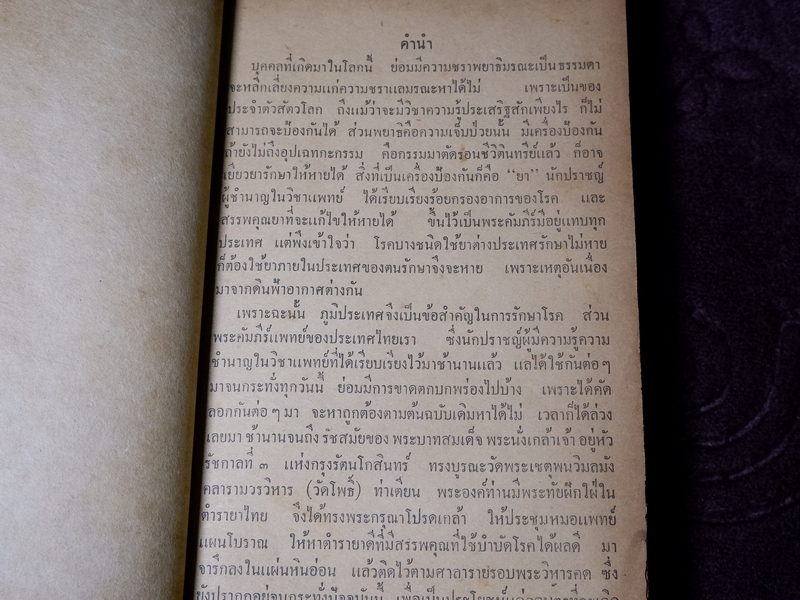 คำนำ
บุคคลที่เกิดมาในโลกนี้ ย่อมมีความชราพยาธิมรณะเป็นธรรมดา
จะหลีกเลี่ยงความแก่ความชราแลมรณะหาได้ไม่ เพราะเป็นของ
ประจำตัวสัตวโลก ถึงแม้ว่าจะมีวิชาความรู้ประเสริฐสักเพียงไร ก็ไม่
สามารถจะป้องกันได้ ส่วนพยาธิคือความเจ็บป่วยนั้น มีเครื่องป้องกัน
ถ้ายังไม่ถึงอุปเฉทกะกรรม คือกรรมมาตัดรอนชีวิตินทรีย์แล้ว ก็อาจ
เยียวยารักษาให้หายได้ สิ่งที่เป็นเครื่องป้องกันก็คือ “ยา” นักปราชญ์
ผู้ชำนาญในวิชาแพทย์ ได้เรียบเรียงร้อยกรองอาการของโรค และ
สรรพคุณยาที่จะแก้ไขให้หายได้ ขึ้นไว้เป็นพระคัมภีร์มีอยู่แทบทุก
ประเทศ แต่พึงเข้าใจว่า โรคบางชนิดใช้ยาต่างประเทศรักษาไม่หาย
ก็ต้องใช้ยาภายในประเทศของตนรักษาจึงจะหาย เพราะเหตุอันเนื่อง
มาจากดินฟ้าอากาศต่างกัน
เพราะฉะนั้น ภูมิประเทศจึงเป็นข้อสำคัญในการรักษาโรค ส่วน
พระคัมภีร์แพทย์ของประเทศไทยเรา ซึ่งนักปราชญ์ผู้มีความรู้ความ
ชำนาญในวิชาแพทย์ที่ได้เรียบเรียงไว้มาช้านานแล้ว แลได้ใช้กันต่อๆ
มาจนกระทั่งทุกวันนี้ ย่อมมีการขาดตกบกพร่องไปบ้าง เพราะได้คัด
ลอกกันต่อๆมา จะหาถูกต้องตามต้นฉบับเดิมหาได้ไม่ เวลาก็ได้ล่วง
เลยมาช้านานจนถึงรัชสมัยของพระบาทสมเด็จพระนั่งเกล้าเจ้าอยู่หัว
รัชกาลที่ ๓ แห่งกรุงรัตนโกสินทร์ ทรงบูรณะวัดพระเชตุพนวิมลมัง
คลารามวรวิหาร (วัดโพธิ์) ท่าเตียน พระองค์ท่านมีพระทัยฝักใฝ่ใน
ตำรายาไทย จึงได้ทรงพระกรุณาโปรดเกล้า ให้ประชุมหมอแพทย์
แผนโบราณ ให้หาตำรายาดีที่มีสรรพคุณที่ใช้บำบัดโรคได้ผลดี มา
จารึกลงในแผ่นหินอ่อน แล้วติดไว้ตามศาลารายรอบพระวิหารคด ซึ่ง
ยังปรากฏอยู่จนกระทั่งปัจจุบันนี้ เพื่อเป็นประโยชน์